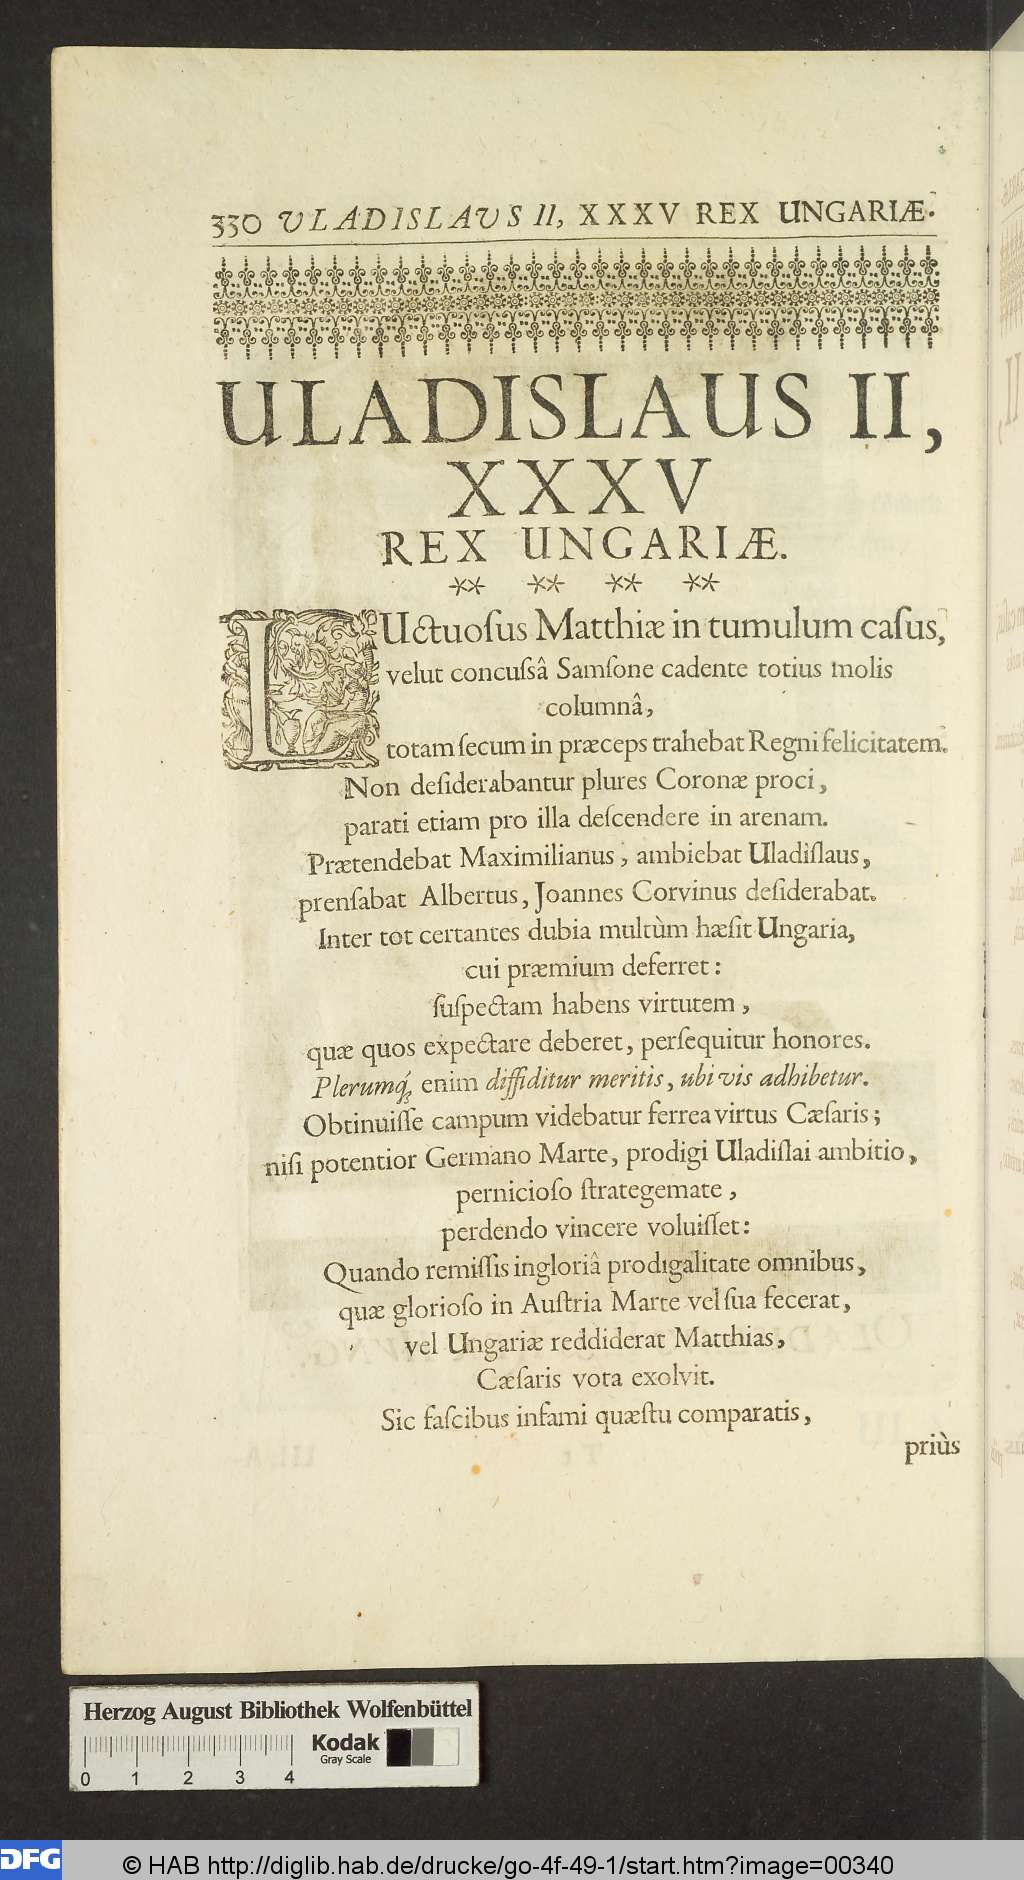 330 ULADISLAUS II, XXXV REX UNGARIÆ.
ULADISLAUS II,
XXXV
REX UNGARIÆ.
** ** ** **
LUctuoſus Matthiæ in tumulum caſus,
velut concuſsâ Samſone cadente totius molis
columnâ,
totam ſecum in præceps trahebat Regni felicitatem.
Non deſiderabantur plures Coronæ proci,
parati etiam pro illa deſcendere in arenam.
Prætendebat Maximilianus, ambiebat Uladiſlaus,
prenſabat Albertus, Joannes Corvinus deſiderabat.
Inter tot certantes dubia multùm hæſit Ungaria,
cui præmium deferret:
ſuſpectam habens virtutem,
quæ quos expectare deberet, perſequitur honores.
Plerumq́; enim diffiditur meritis, ubi vis adhibetur.
Obtinuiſſe campum videbatur ferrea virtus Cæſaris;
niſi potentior Germano Marte, prodigi Uladiſlai ambitio,
pernicioſo ſtrategemate,
perdendo vincere voluiſſet:
Quando remiſſis ingloriâ prodigalitate omnibus,
quæ glorioſo in Auſtria Marte vel ſua fecerat,
vel Ungariæ reddiderat Matthias,
Cæſaris vota exolvit.
Sic faſcibus infami quæſtu comparatis,
priùs
Herzog August Bibliothek Wolfenbüttel
Kodak
Gray Scale
0 1 2 3 4
DFG
© HAB http://diglib.hab.de/drucke/go-4f-49-1/start.htm?image=00340